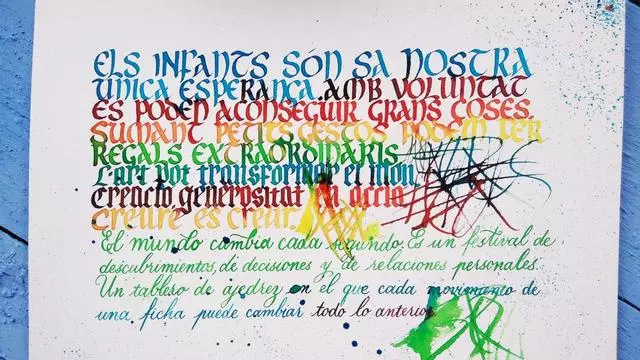 ELS INFANTS SÓN SA NOSTRA
ÚNICA ESPERANÇA. AMB VOLUNTAT
ES PODEN ACONSEGUIR GRANS COSES.
SUMANT PETITS GESTOS PODEM FER
REGALS EXTRAORDINARIS.
L'art pot transformar el món.
Creació, generositat en acció.
Creure es crear.
El mundo cambia cada segundo. Es un festival de
descubrimientos, de decisiones y de relaciones personales.
Un tablero de ajedrez en el que cada movimiento de
una ficha puede cambiar todo lo anterior.